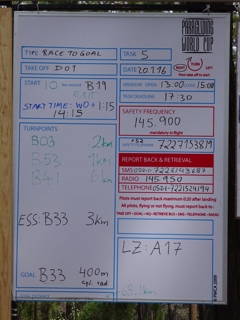 PARAGLIDING
WORLD CUP
TYPE: RACE TO GOAL
TASK 5
TAKE OFF D01
DATE 20.7.16
START 10 B19
EXIT
START TIME: WO+1:15
14:15
WINDOW OPEN 13:00 CLOSE 15:00
TASK DEADLINE 17:30
SAFETY FREQUENCY
145.900
mandatory in flight
TURNPOINTS
B03 2km
B53 1km
REPORT BACK & RETRIEVAL
RADIO 145.950
TELEPHONE
Pilots must report back maximum 0.30 after landing
All pilots, flying or not flying, must report back to:
TAKE OFF - GOAL - HQ - RETRIEVE BUS - SMS - TELEPHONE - RADIO
ESS: B33 3km
LZ: A17
GOAL B33 400m
cyl. rad